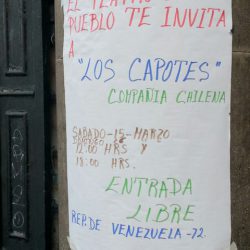 EL TEATRO
PUEBLO TE INVITA
A
"LOS CAPOTES"
COMPAÑIA CHILENA
SABADO-15-MARZO
12:00 HRS Y
18:00 HRS.
ENTRADA
LIBRE
REP. DE VENEZUELA-72.